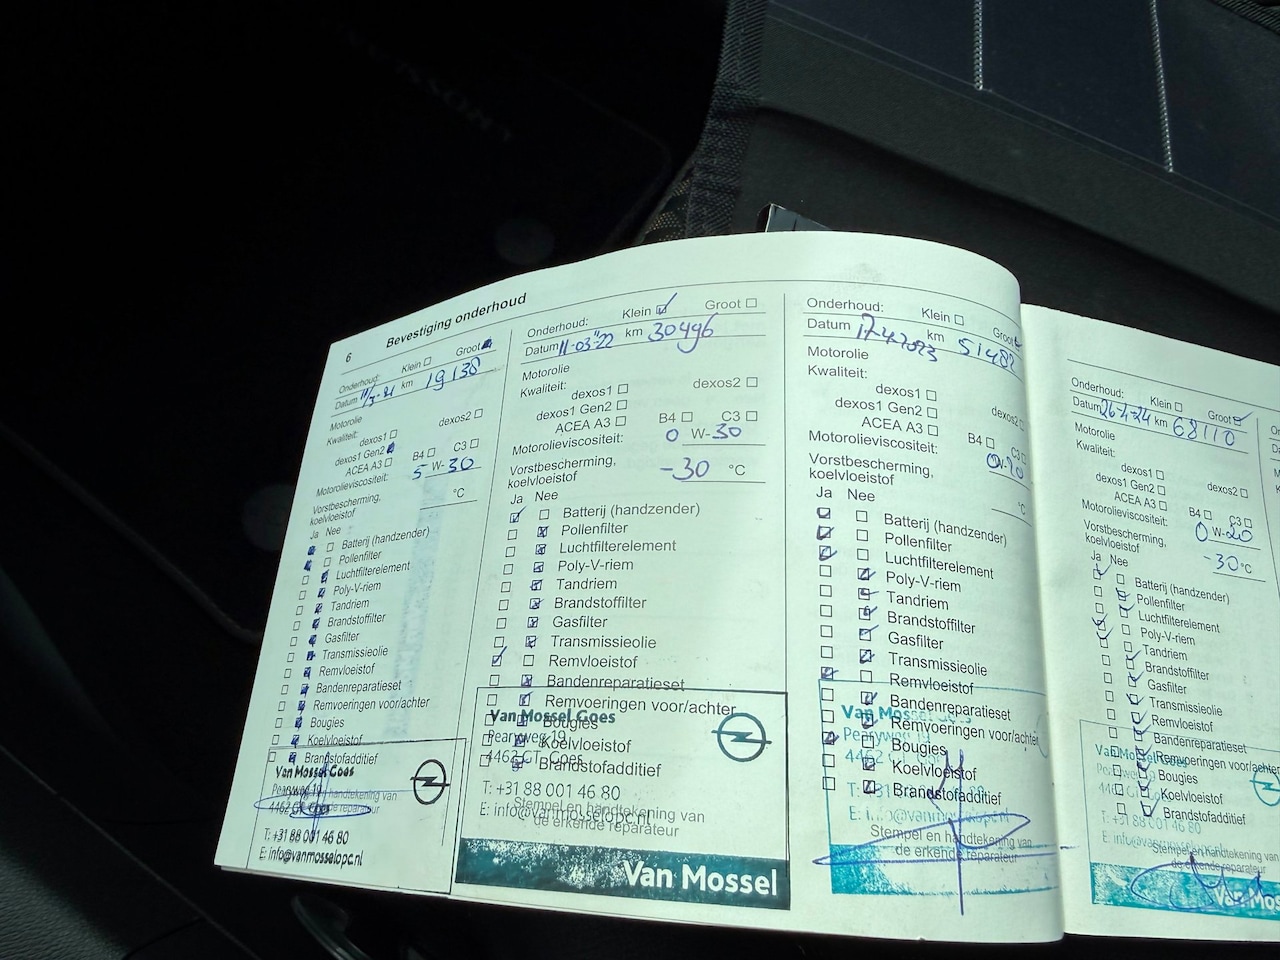 6 Bevestiging onderhoud
Onderhoud: Klein Groot
Datum km 19138
Motorolie
Kwaliteit:
dexos1 dexos2
dexos1 Gen2
ACEA A3 B4 C3
Motorolieviscositeit: 5 W-30
Vorstbescherming, °C
koelvloeistof
Ja Nee
Batterij (handzender)
Pollenfilter
Luchtfilterelement
Poly-V-riem
Tandriem
Brandstoffilter
Gasfilter
Transmissieolie
Remvloeistof
Bandenreparatieset
Remvoeringen voor/achter
Bougies
Koelvloeistof
Brandstofadditief
Van Mossel Goes
Pearyweg 19
4462 GT Goes
T: +31 88 001 46 80
E: info@vanmosselopc.nl
Onderhoud: Klein Groot
Datum 11-03-'22 km 30496
Motorolie
Kwaliteit:
dexos1 dexos2
dexos1 Gen2
ACEA A3 B4 C3
Motorolieviscositeit: 0 W-30
Vorstbescherming, -30 °C
koelvloeistof
Ja Nee
Batterij (handzender)
Pollenfilter
Luchtfilterelement
Poly-V-riem
Tandriem
Brandstoffilter
Gasfilter
Transmissieolie
Remvloeistof
Bandenreparatieset
Remvoeringen voor/achter
Bougies
Koelvloeistof
Brandstofadditief
Van Mossel Goes
Pearyweg 19
4462 GT Goes
T: +31 88 001 46 80
E: info@vanmosselopc.nl
Stempel en handtekening van
de erkende reparateur
Van Mossel
Onderhoud: Klein Groot
Datum 17-4-2023 km 51482
Motorolie
Kwaliteit:
dexos1
dexos1 Gen2
ACEA A3 B4 C3
Motorolieviscositeit: 0W-20
Vorstbescherming, °C
koelvloeistof
Ja Nee
Batterij (handzender)
Pollenfilter
Luchtfilterelement
Poly-V-riem
Tandriem
Brandstoffilter
Gasfilter
Transmissieolie
Remvloeistof
Bandenreparatieset
Remvoeringen voor/achter
Bougies
Koelvloeistof
Brandstofadditief
Van Mossel
Pearyweg 19
4462
Stempel en handtekening van
de erkende reparateur
Onderhoud: Klein Groot
Datum km 68110
Motorolie
Kwaliteit:
dexos1 dexos2
dexos1 Gen2
ACEA A3 B4 C3
Motorolieviscositeit: 0 W-20
Vorstbescherming, -30 °C
koelvloeistof
Ja Nee
Batterij (handzender)
Pollenfilter
Luchtfilterelement
Poly-V-riem
Tandriem
Brandstoffilter
Gasfilter
Transmissieolie
Remvloeistof
Bandenreparatieset
Remvoeringen voor/achter
Bougies
Koelvloeistof
Brandstofadditief
T: +31 88 001 46 80
Stempel en handtekening van
de erkende reparateur